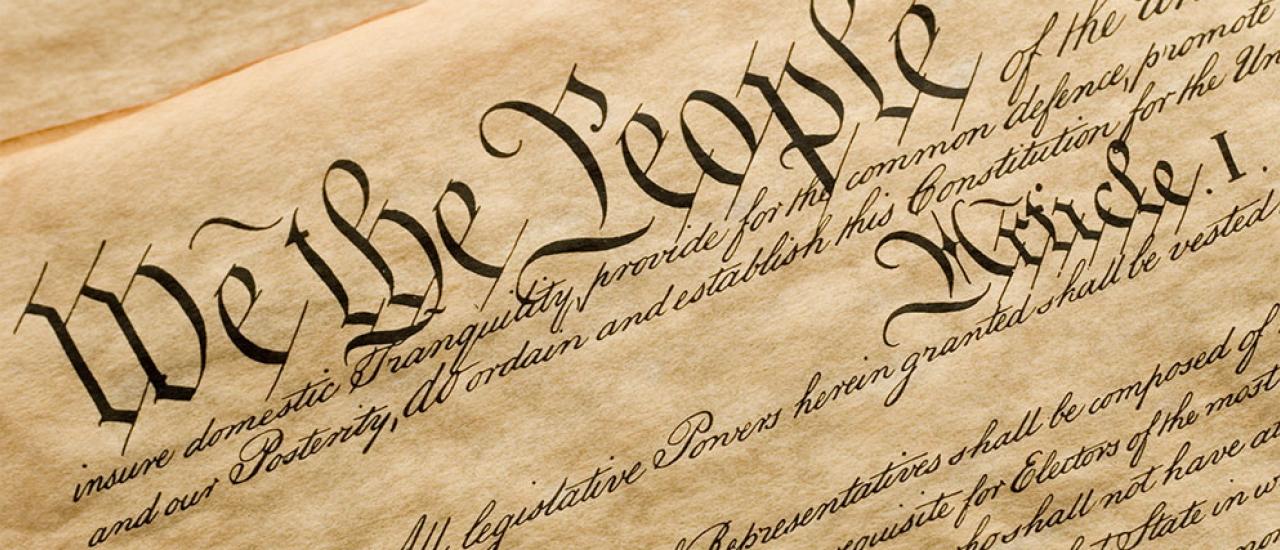 We the People of the Un
insure domestic Tranquility, provide for the common defence, promote
and our Posterity, do ordain and establish this Constitution for the Un
Article. I.
All legislative Powers herein granted shall be vested
Representatives shall be composed of
equisite for Electors of the most
ho shall not have at
State in w